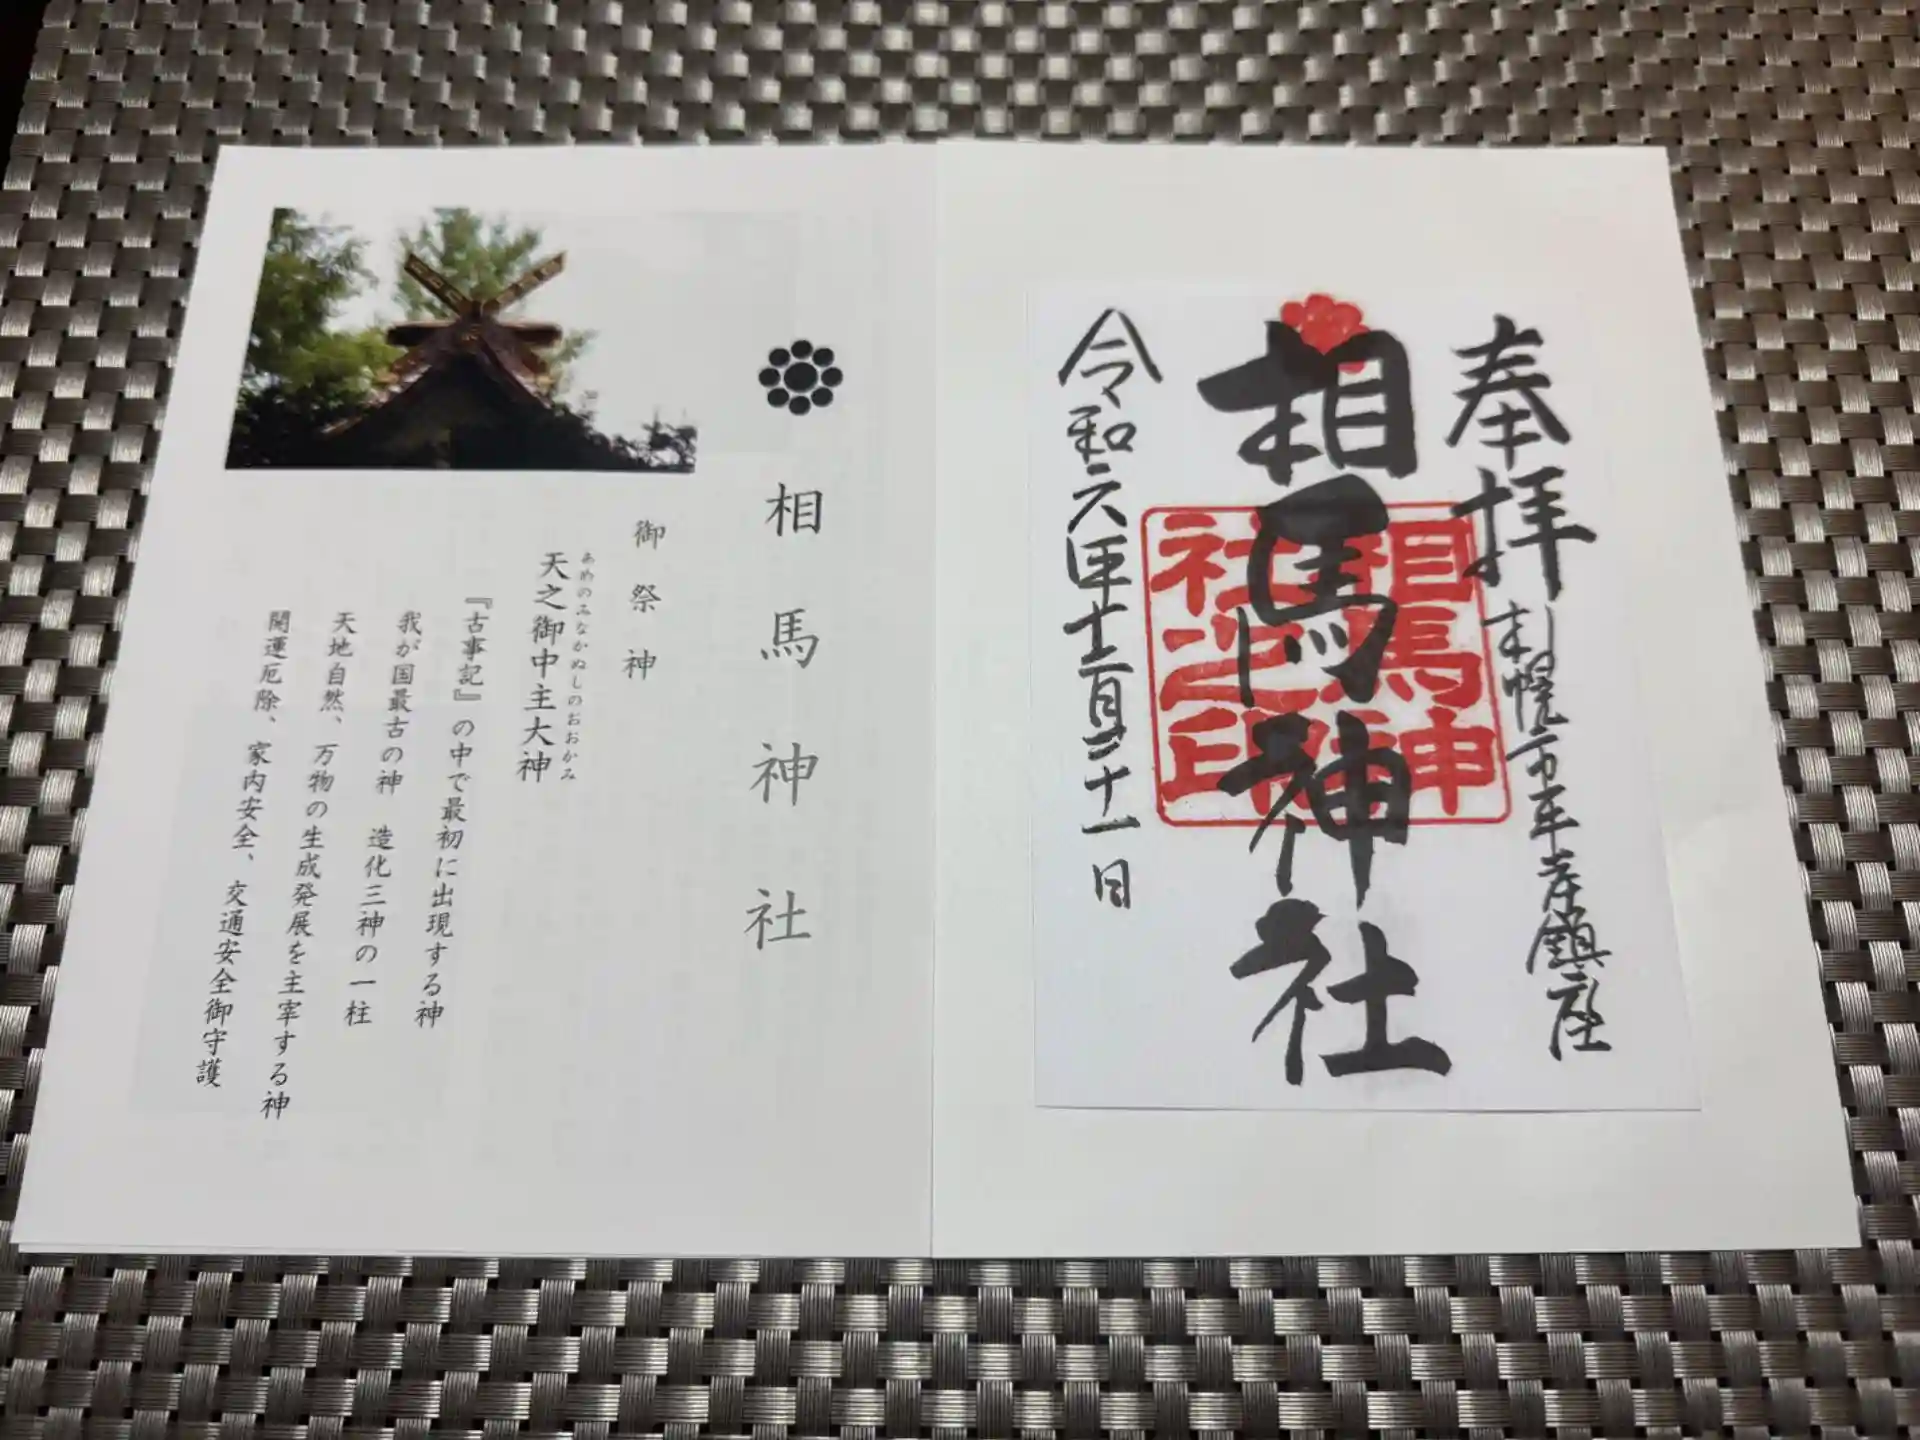 奉拝
札幌市平岸鎮座
相馬神社
相馬神
社之印
令和六年十二月三十一日
相馬神社
御祭神
あめのみなかぬしのおおかみ
天之御中主大神
『古事記』の中で最初に出現する神
我が国最古の神 造化三神の一柱
天地自然、万物の生成発展を主宰する神
開運厄除、家内安全、交通安全御守護